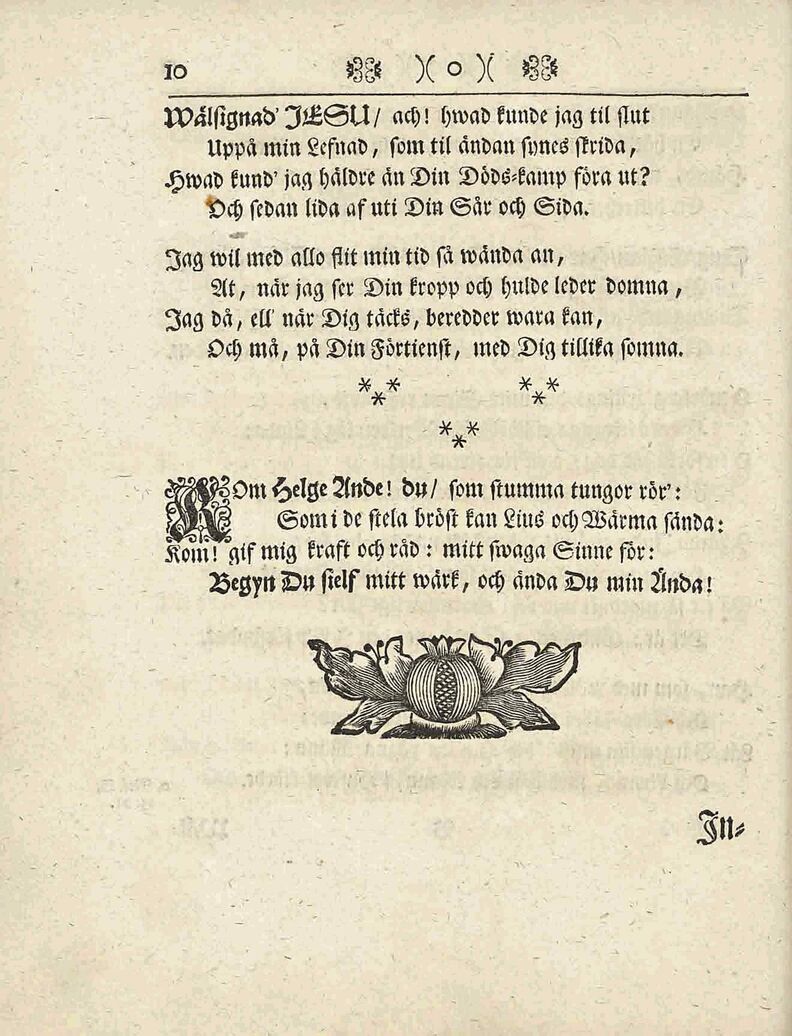 10 )( o )(
Wälsignad' JESU/ ach! hwad kunde jag til slut
Uppå min Lefnad, som til ändan synes skrida,
Hwad kund' jag häldre än Din Döds-kamp föra ut?
Och sedan lida af uti Din Sår och Sida.
Jag wil med allo flit min tid så wända an,
At, när jag ser Din kropp och hulde leder domna,
Jag då, ell' när Dig täcks, beredder wara kan,
Och må, på Din Förtienst, med Dig tillika somna.
*** ***
***
KOm Helge Ande! du/ som stumma tungor rör':
Som i de stela bröst kan Lius och Wärma sända:
Kom! gif mig kraft och råd: mitt swaga Sinne för:
Begyn Du sielf mitt wärk, och ända Du min Ända!
In-